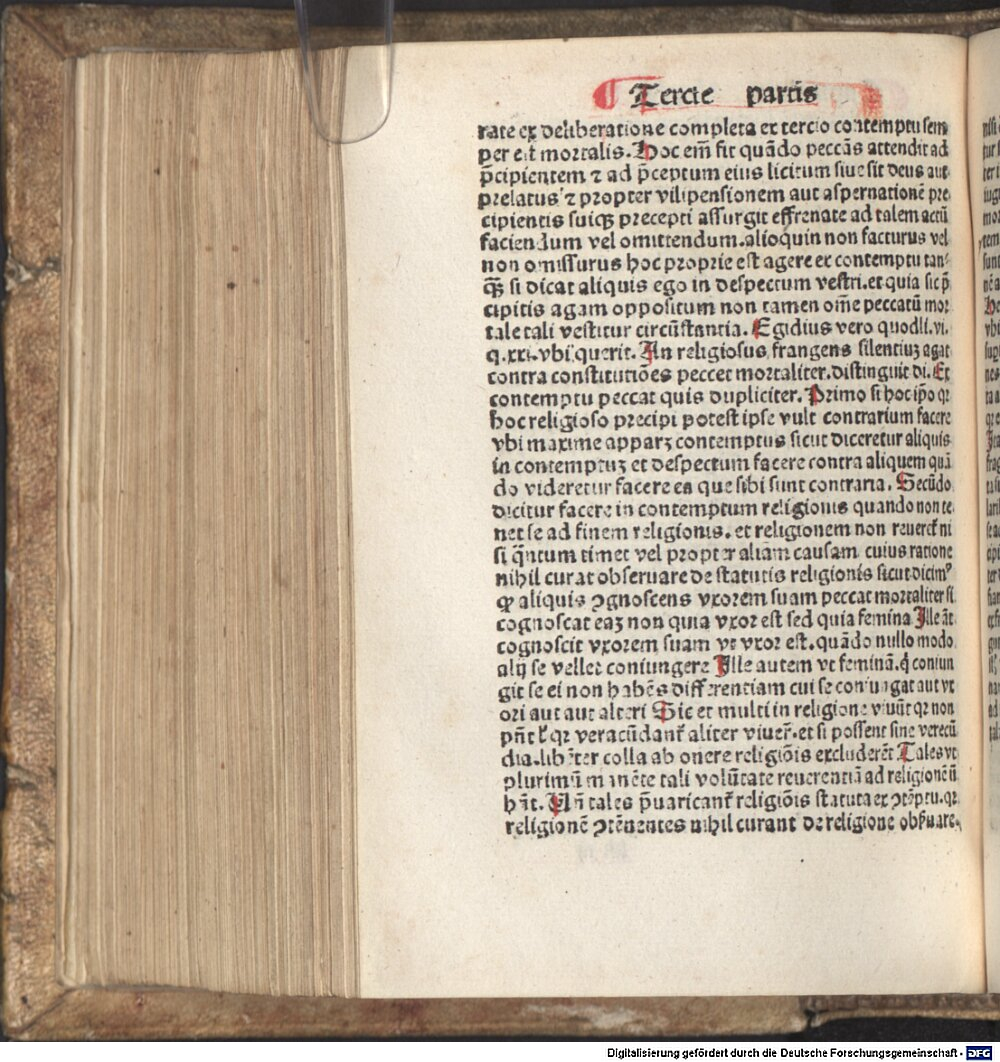 Tercie partis
rate ex deliberatione completa et tercio contemptu sem
per est mortalis. Hoc em̄ fit quādo peccās attendit ad
p̄cipientem ⁊ ad p̄ceptum eius licitum siue sit deus aut
prelatus ⁊ propter vilipensionem aut aspernationē pre
cipientis suiqꝫ precepti assurgit effrenate ad talem actū
faciendum vel omittendum. alioquin non facturus vel
non omissurus hoc proprie est agere ex contemptu tan
qꝫ̄ si dicat aliquis ego in despectum vestri. et quia sic p̄
cipitis agam oppositum non tamen om̄e peccatū mor
tale tali vestitur circūstantia. Egidius vero quodli. vi.
q. xxi. vbi querit. An religiosus frangens silentiuꝫ agat
contra constitutiōes peccet mortaliter. distinguit di. Ex
contemptu peccat quis dupliciter. Primo si hoc ip̄o qꝛ
hoc religioso precipi potest ipse vult contrarium facere
vbi maxime apparꝫ contemptus sicut diceretur aliquis
in contemptuꝫ et despectum facere contra aliquem quā
do videretur facere ea que sibi sunt contraria. Secūdo
dicitur facere in contemptum religionis quando non te
net se ad finem religionis. et religionem non reueret̄ ni
si q̄ntum timet vel propter aliam causam cuius ratione
nihil curat obseruare de statutis religionis sicut dicimꝰ
ꝙ aliquis ꝯgnoscens vxorem suam peccat mortaliter si
cognoscat eaꝫ non quia vxor est sed quia femina Ille āt
cognoscit vxorem suam vt vxor est. quādo nullo modo
alij se vellet coniungere Ille autem vt feminā. q̇ coniun
git se ei non habēs differentiam cui se coniungat aut vx
ori aut aut alteri Sic et multi in religione viuūt qꝛ non
pn̄t ł qꝛ veracūdant̄ aliter viuer̄. et si possent sine verecū
dia. lib̄ter colla ab onere religiōis excluderēt Tales vt
plurimū manēte tali volūtate reuerentiā ad religionē nō
hn̄t. Vn̄ tales p̄uaricant̄ religiōis statuta ex ꝯtēptu. qꝛ
religionē ꝯtēnentes nihil curant de religione obẜuare.
Digitalisierung gefördert durch die Deutsche Forschungsgemeinschaft - DFG